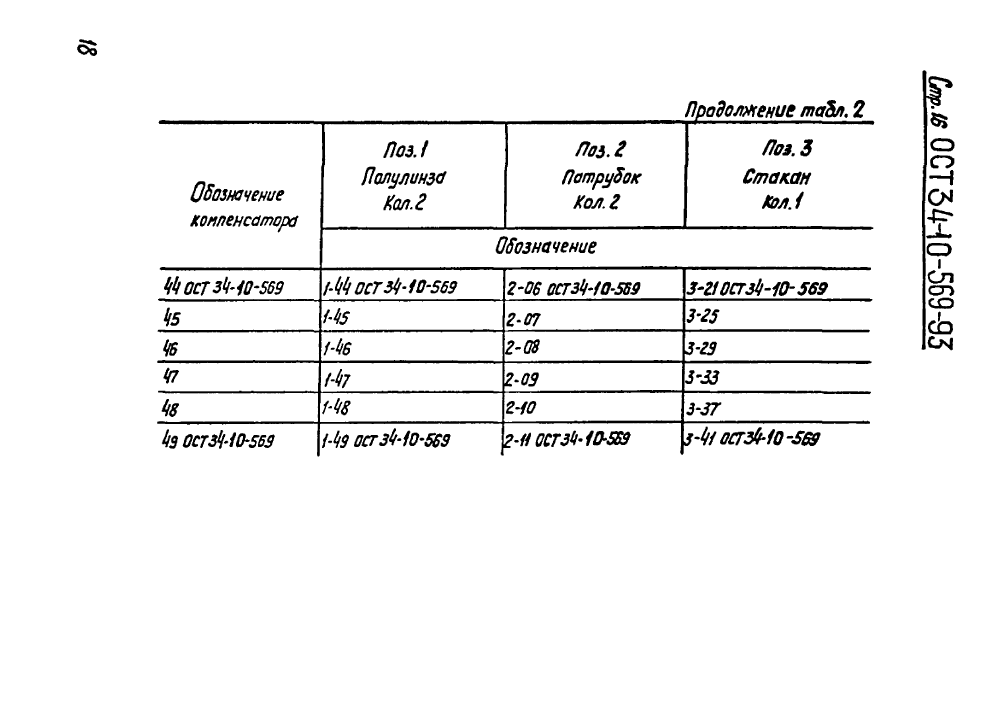 18
Стр. 16 ОСТ 34-10-569-93
Продолжение табл. 2
Обозначение компенсатора
Поз. 1 Полулинза Кол. 2
Поз. 2 Патрубок Кол. 2
Поз. 3 Стакан Кол. 1
Обозначение
44 ОСТ 34-10-569 1-44 ОСТ 34-10-569 2-06 ОСТ 34-10-569 3-21 ОСТ 34-10-569
45 1-45 2-07 3-25
46 1-46 2-08 3-29
47 1-47 2-09 3-33
48 1-48 2-10 3-37
49 ОСТ 34-10-569 1-49 ОСТ 34-10-569 2-11 ОСТ 34-10-569 3-41 ОСТ 34-10-569